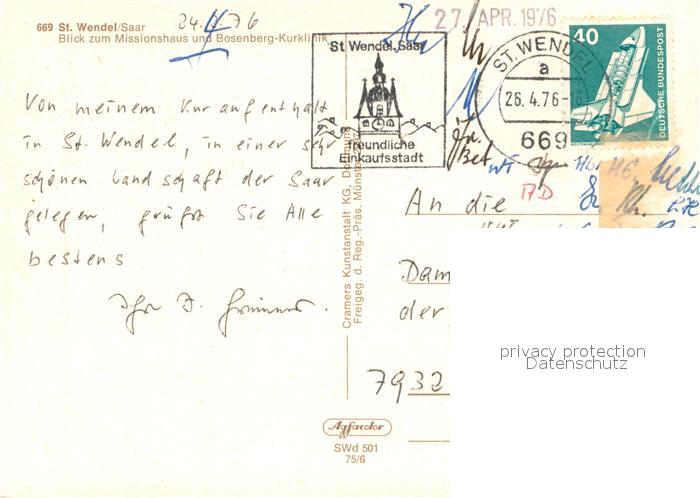 24. 4. 76
669 St. Wendel/Saar
Blick zum Missionshaus und Bosenberg-Kurklinik
Von meinem Kuraufenthalt
in St. Wendel, in einer sehr
schönen Landschaft der Saar
gelegen, grüßt Sie Alle
bestens
Ihr J.
27. APR. 1976
St Wendel, Saar
freundliche
Einkaufsstadt
ST. WENDEL
a
26.4.76-
669
40
DEUTSCHE BUNDESPOST
An die
Dam
der
7932
Cramers Kunstanstalt KG, Dortmund
Freigeg. d. Reg.-Präs. Münster
Agfacolor
SWd 501
75/6
privacy protection
Datenschutz